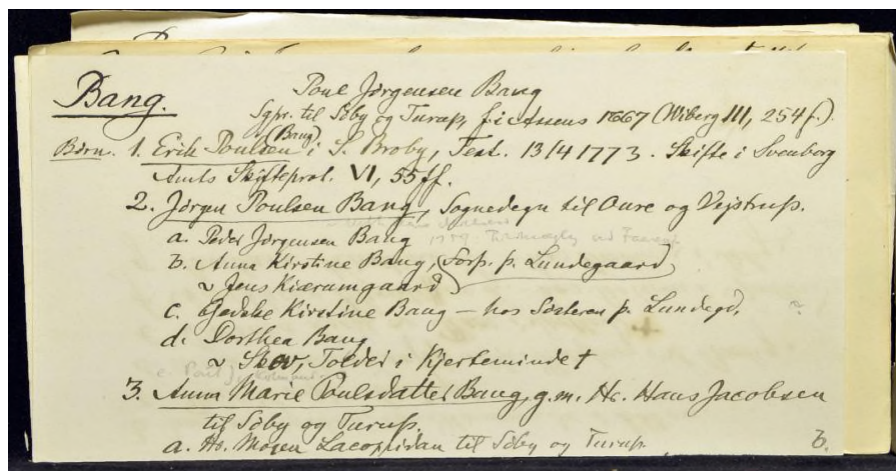 Bang.
Poul Jørgensen Bang
Sgpr. til Söby og Turup, f. i Assens 1667 (Wiberg III, 254 f.).
Börn. 1. Erik Poulsen (Bang) i S. Broby, Test. 13/4 1773. Skifte i Svenborg
Amts Skifteprot. VI, 55 ff.
2. Jørgen Poulsen Bang, Sognedegn til Oure og Vejstrup.
a. Peder Jørgensen Bang
b. Anna Kirstine Bang, Forp. p. Lundegaard
~ Jens Kiærumgaard
c. Gedske Kirstine Bang – hos Søsteren p. Lundegd.
d. Dorthea Bang
~ Skov, Tolder i Kjerteminde †
3. Anna Marie Poulsdatter Bang, g.m. Hr. Hans Jacobsen
til Söby og Turup.
a. Hr. Mogen Lacoppidan til Söby og Turup.